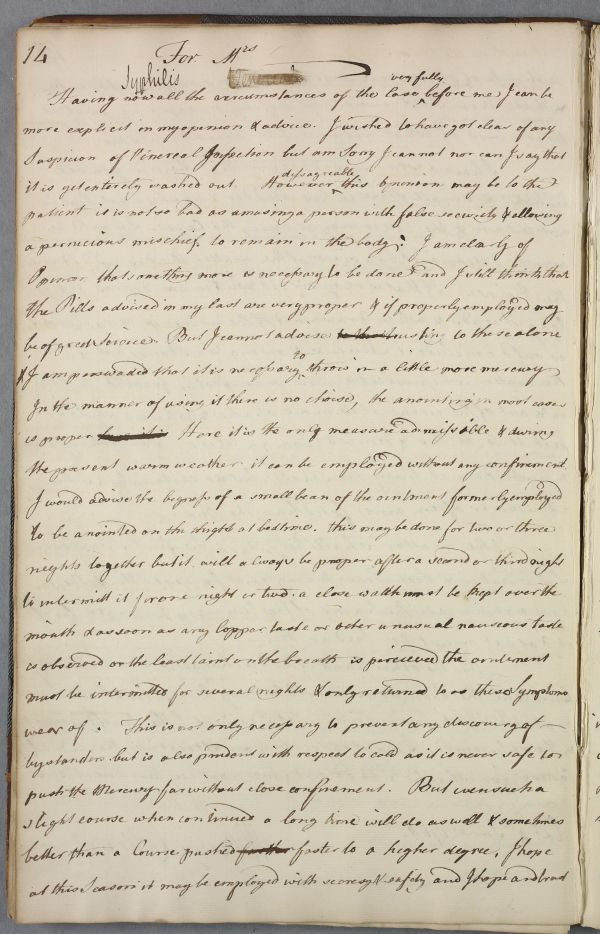 14 For Mrs
Syphilis
very fully
Having now all the circumstances of the Case before me I can be
more explicit in my opinion & advice. I wished to have got clear of any
Suspicion of Venereal Infection but am Sorry I cannot nor can I say that
dissagreeable
it is yet enterely washed out. However this Opinion may be to the
patient it is not so bad as amusing a person with false security & allowing
a pernicious mischief to remain in the body; I am clearly of
Opinion that something more is necessary to be done and I still think that
the Pills advised in my last are very proper & if properly employed may
be of great Service. But I cannot advise trusting to these alone
to
& I am perswaded that it is necessary throw in a little more mercury
In the manner of using it there is no choise, the anointing in most cases
is proper Here it is the only measure admissible & during
the present warm weather it can be employed without any confinement
I would advise the bigness of a small bean of the ointment formerly employed
to be anointed on the thighs at bedtime. this may be done for two or three
nights together but it will always be proper after a second or third night
to intermitt it for one night or two. a close watch must be kept over the
mouth & as soon as any Copper taste or other unusual nauseous taste
is observed or the least taint on the breath is percieved the ointment
must be intermitted for several nights & only returned to as these Symptoms
wear of. This is not only necessary to prevent any discovery of
bystanders but is also prudent with respect to cold as it is never safe to
push the Mercury far without close confinement. But even such a
slight course when continued a long time will do as well & sometimes
better than a Course pushed faster to a higher degree. I hope
at this Season it may be employed with secresy & safety and I hope and